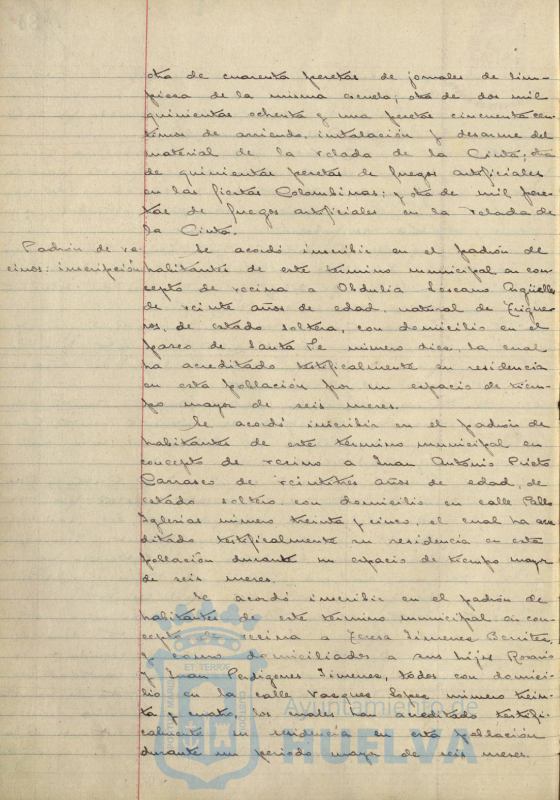 otra de cuarenta pesetas de jornales de lim-
pieza de la misma escuela; otra de dos mil
quinientas ochenta y una pesetas cincuenta cen-
timos de arriendo, instalación y desarme del
material de la velada de la Cinta; otra
de quinientas pesetas de fuegos artificiales
en las fiestas Colombinas; y otra de mil pese-
tas de fuegos artificiales en la velada de
la Cinta.
Padrón de ve-
cinos: inscripción
Se acordó inscribir en el padrón de
habitantes de este término municipal en con-
cepto de vecina a Obdulia Lozcano Argüelles
de veinte años de edad, natural de Trigue-
ros, de estado soltera, con domicilio en el
paseo de Santa Fe número diez, la cual
ha acreditado testificalmente su residencia
en esta población por un espacio de tiem-
po mayor de seis meses.
Se acordó inscribir en el padrón de
habitantes de este término municipal en
concepto de vecino a Juan Antonio Prieto
Carrasco de veintitres años de edad, de
estado soltero, con domicilio en calle Pablo
Iglesias número treinta y cinco, el cual ha acre-
ditado testificalmente su residencia en esta
población durante un espacio de tiempo mayor
de seis meses.
Se acordó inscribir en el padrón de
habitantes de este término municipal en con-
cepto de vecina a Teresa Jimenez Benitez,
y como domiciliados a sus hijos Rosario
y Juan Perdigones Jimenez, todos con domici-
lio en la calle Vazquez Lopez número trein-
ta y cuatro, los cuales han acreditado testifi-
calmente su residencia en esta población
durante un periodo mayor de seis meses.
Ayuntamiento de
HUELVA